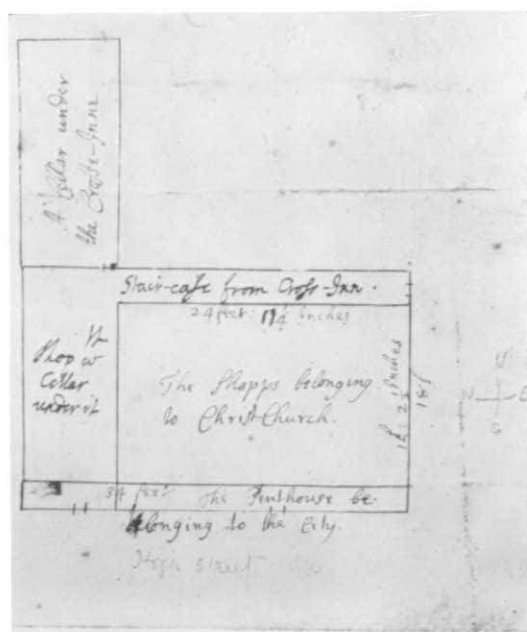 A Cellar under
the Crosse-Inne
Stair-case from Cross-Inn.
24 feet: 11¼ Inches
Shop wth
Cellar
under it
The Shopps belonging
to Christ Church.
Inches
34 feet
The Penthouse be-
belonging to the City.
High Street